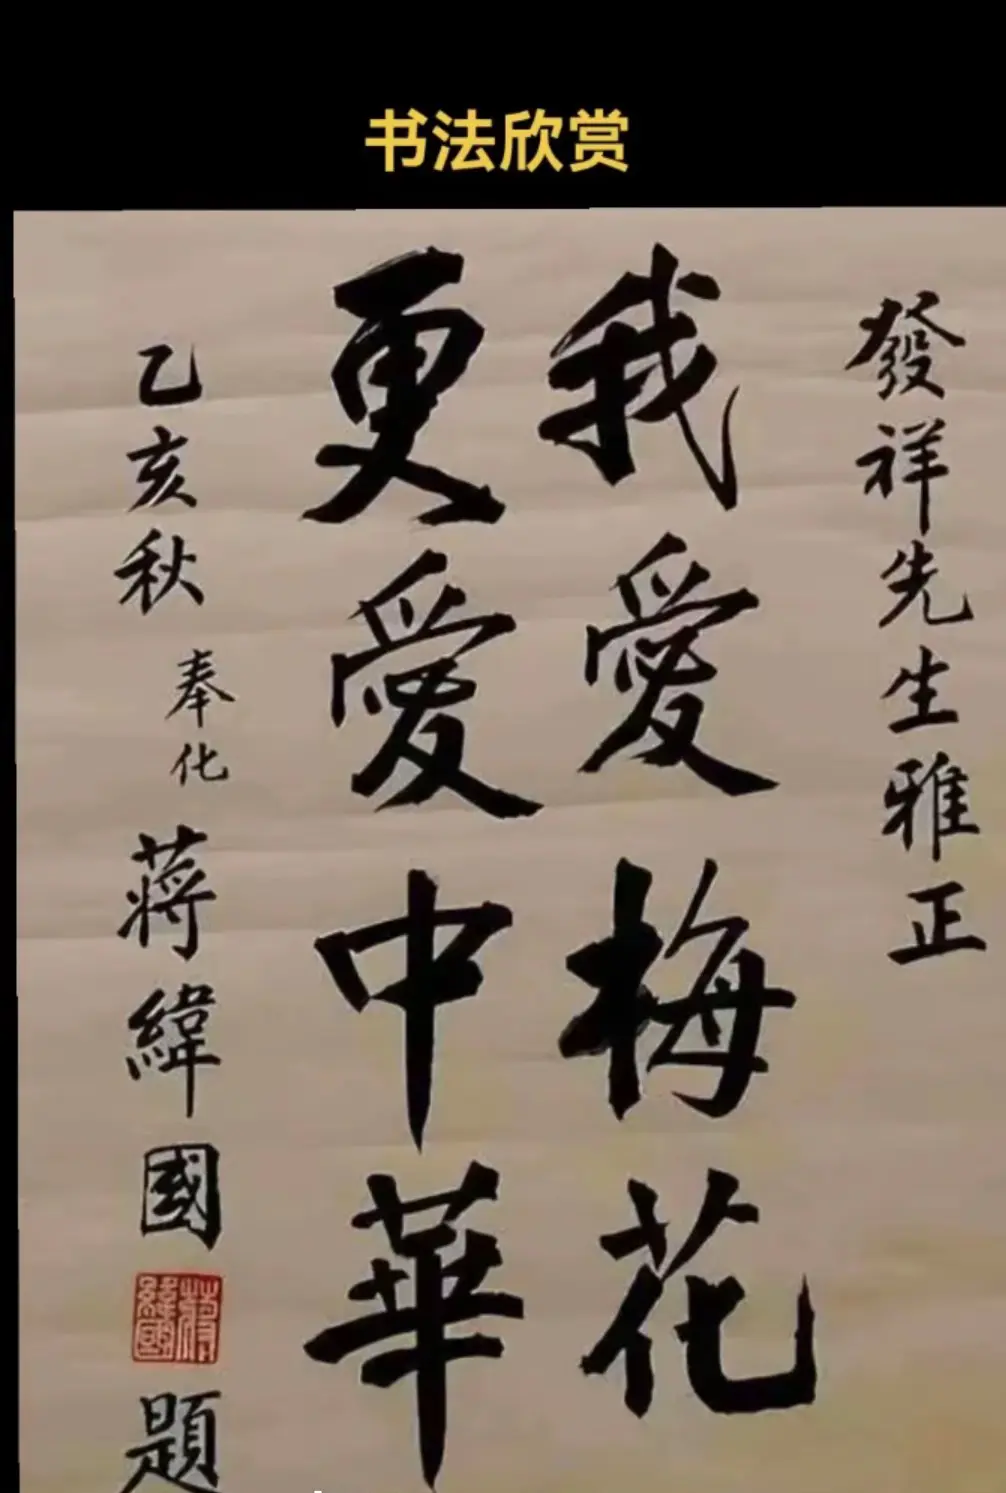 书法欣赏
發祥先生雅正
我愛梅花
更愛中華
乙亥秋 奉化 蔣緯國 題
蔣緯國